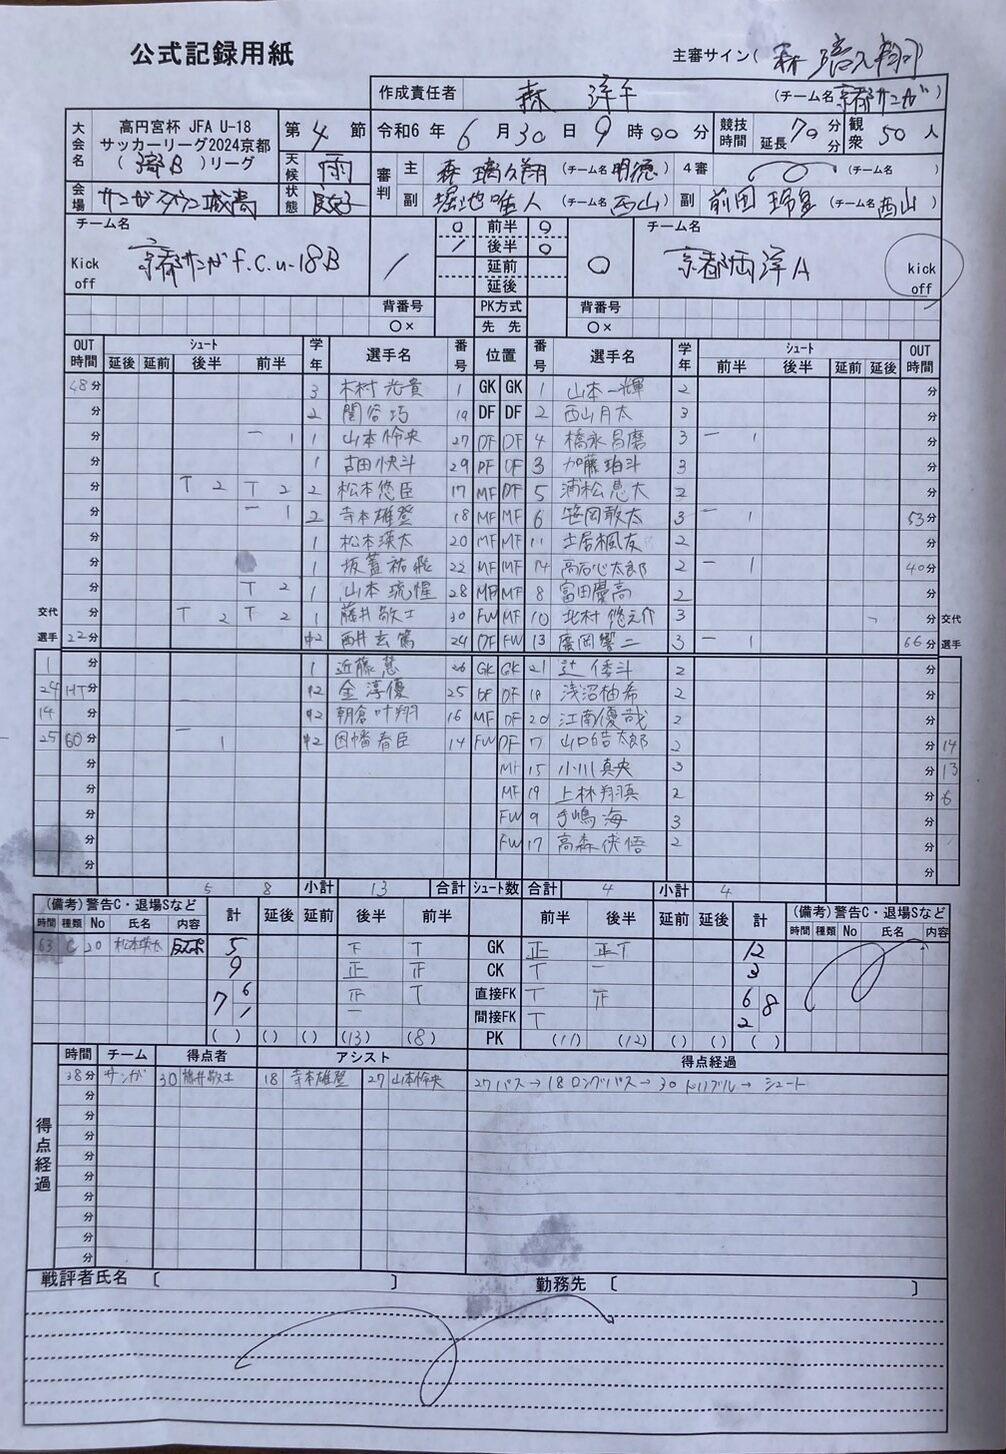 公式記録用紙
主審サイン(
作成責任者 森 洋平 (チーム名 京都サンガ )
大会名 高円宮杯 JFA U-18 サッカーリーグ2024京都 ( B )リーグ 第 4 節 令和6 年 6 月 30 日 9 時 00 分 競技時間 70 分 延長 分 観衆 50 人
天候 雨 審判 主 森 璃久翔 (チーム名 明徳 ) 4審 (チーム名 )
会場 サンガタウン城陽 状態 良好 副 堀池唯人 (チーム名 西山 ) 副 前田 (チーム名 西山 )
チーム名 0 前半 0 チーム名
1 後半 0
Kick off 京都サンガF.C.U-18B 1 延前 0 京都両洋A kick off
延後
背番号 PK方式 背番号
○× 先 先 ○×
OUT時間 シュート 学年 選手名 番号 位置 番号 選手名 学年 シュート OUT時間
延後 延前 後半 前半 前半 後半 延前 延後
48分 3 木村 光貴 1 GK GK 1 山本 一輝 2 分
分 2 関谷 巧 19 DF DF 2 西山月太 3 分
分 一 1 1 山本 怜央 27 DF DF 4 橋永昌磨 3 一 1 分
分 1 古田 快斗 29 DF DF 3 加藤珀斗 3 分
分 T 2 T 2 2 松本悠臣 17 MF DF 5 浦松 大 2 分
分 一 1 2 寺本雄登 18 MF MF 6 笹岡敢太 3 一 1 53分
分 1 松本瑛太 20 MF MF 11 土居楓友 2 分
分 1 坂蓋祐飛 22 MF MF 14 高石心太郎 2 一 1 40分
分 T 2 1 山本琉惺 28 MF MF 8 富田慶高 2 分
交代 分 T 2 T 2 1 藤井敬士 30 FW MF 10 北村 悠之介 3 分 交代
選手 22分 中2 酉井玄篤 24 DF FW 13 廣岡響二 3 一 1 66分 選手
1 分 1 近藤 慧 26 GK GK 21 辻 倭斗 2 分
24 HT分 中2 金 淳優 25 DF DF 18 浅沼柚希 2 分
14 分 中2 朝倉叶翔 16 MF DF 20 江南優哉 2 分
25 60分 一 1 中2 因幡春臣 14 FW DF 7 山口皓太郎 2 分 14
分 MF 15 小川真央 3 分 13
分 MF 19 上林翔真 2 分 6
分 FW 9 手嶋 海 3 分
分 FW 17 高森侠悟 2 分
分 分
5 8 小計 13 合計 シュート数 合計 4 小計 4
(備考) 警告C・退場Sなど 計 延後 延前 後半 前半 前半 後半 延前 延後 計 (備考) 警告C・退場Sなど
時間 種類 No 氏名 内容 時間 種類 No 氏名 内容
63 C 20 松本瑛太 反スポ 5 下 T GK 正 正T 12
9 正 正 CK T 一 3
7 6 正 T 直接FK T 正 6 8
1 一 間接FK T 2
( ) ( ) ( ) (13) (8) PK (11) (12) ( ) ( ) ( )
得点経過
時間 チーム 得点者 アシスト 得点経過
38分 サンガ 30 藤井敬士 18 寺本雄登 27 山本怜央 27 パス→18 ロングパス→30 ドリブル→シュート
分
分
分
分
分
分
分
分
分
戦評者氏名 [ ] 勤務先 [ ]